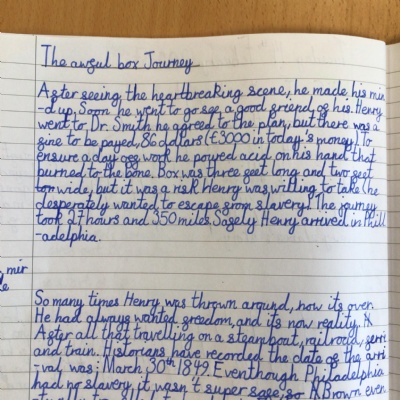 The awful box Journey
After seeing the heartbreaking scene, he made his min
-d up. Soon he went to go see a good friend of his. Henry
went to Dr. Smith he agreed to the plan, but there was a
fine to be payed, 86 dollars (£3000 in today's money). To
ensure a day off work he poured acid on his hand that
burned to the bone. Box was three feet long and two feet
wide, but it was a risk Henry was willing to take (he
desperately wanted to escape from slavery). The journey
took 27 hours and 350 miles. Safely Henry arrived in Phill
-adelphia.
mir
So many times Henry was thrown around, now its over.
He had always wanted freedom, and its now reality.
After all that travelling on a steamboat, railroad, ferri
and train. Historians have recorded the date of the arri
-val was: March 30th 1849. Eventhough Philadelphia
had no slavery, it wasn't super safe, so Brown even